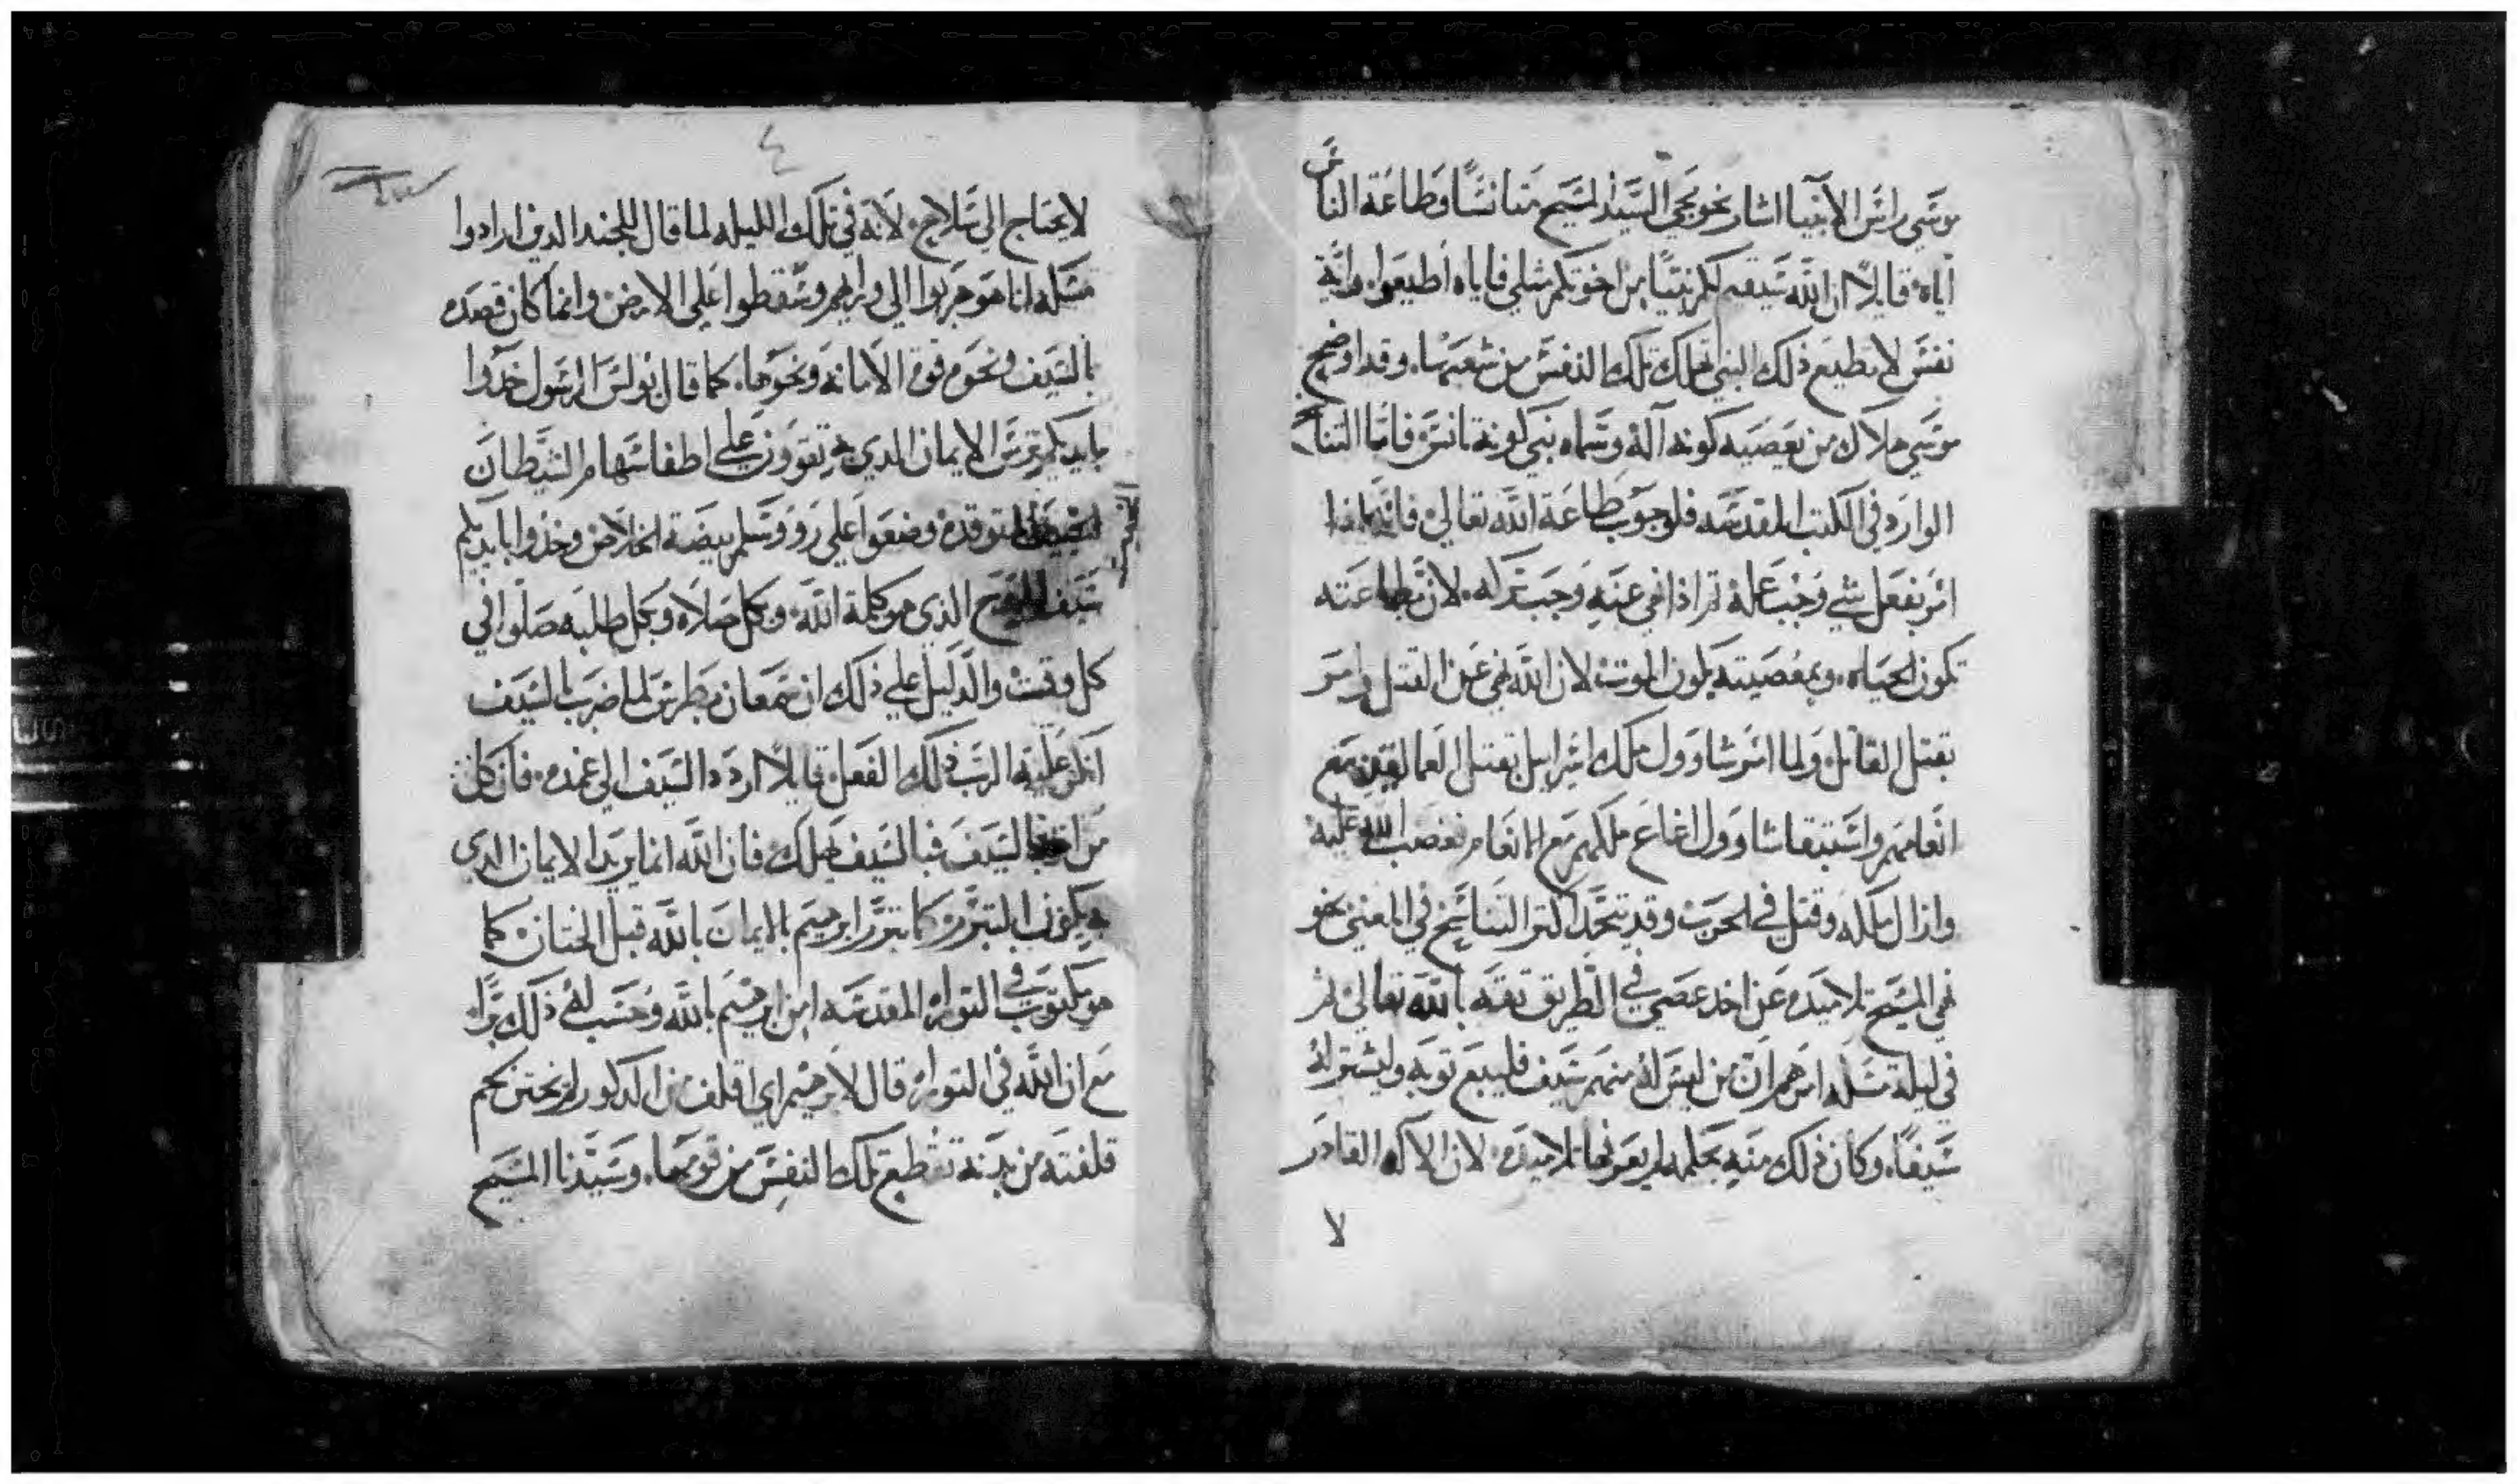 موسي راس الأنبيا اشار نحو مجي السيد المسيح متانسًا وطاعة الناس
اياه قايلاً ان الله سيقيم لكم نبيًا من اخوتكم مثلي فاياه اطيعوا وايه
نفس لا تطيع ذلك النبي تهلك تلك النفس من شعبها، وقد اوضح
موسي هلاك من يعصيه كونه آله وسماه نبي كونه تانس فاما التنا
الوارد في الكتب المقدسه فلوجوب طاعة الله تعالي فانه اذا
امر بفعل شي وجب عمله ثم اذا نهي عنه وجب تركه، لان بطاعته
تكون الحياه، وبمعصيته يكون الموت لان الله نهي عن القتل وامر
بقتل القاتل ولما امر شاوول ملك اسرايل بقتل العمالقه مع
انعامهم واستبقا شاوول اغاغ ملكهم مع الانعام فغضب الله عليه
وازال ملكه وقتل في الحرب وقد تجد اكثر التناسخ في المعني نحو
نهي المسيح تلاميذه عن اخد عصي في الطريق تقه بالله تعالي ثم
في ليلة تسلمه امرهم ان من ليس له منهم سيف فليبيع توبه وليشتر له
سيفًا، وكان ذلك منه بحكمه لم يعرفها تلاميذه، لان الاله القادر
لا
٤
لا يحتاج الي سلاح، لانه في تلك الليله لما قال للجند الدين ارادوا
مسكه انا هو هربوا الي ورايهم وسقطوا علي الارض وانما كان قصده
بالسيف ونحوه قوة الامانه ونحوها، كما قال بولس الرسول خدوا
بايديكم ترس الايمان الدي به تقوون علي اطفا سهام الشيطان
المتوقده وضعوا علي رووسكم بيضة الخلاص وخذوا بايديكم
سيف الروح الذي هو كلمة الله، وبكل صلاه وبكل طلبه صلوا في
كل وقت والدليل علي ذلك ان سمعان بطرس لما ضرب بالسيف
انكر عليه الرب ذلك الفعل قايلاً اردد السيف الي غمده، فان كل
من اخذ بالسيف فبالسيف يهلك فان الله انما يريد الايمان الدي
به يكون التبرر كما تبرر ابرهيم بالايمان بالله قبل الختان كما
هو مكتوب في التوراه المقدسه امن ابرهيم بالله وحسب له ذلك برًا
مع ان الله في التوراه قال لابرهيم اي اقلف من الدكور لم يختن لحم
قلفته من بدنه تنقطع تلك النفس من قومها، وسيدنا المسيح